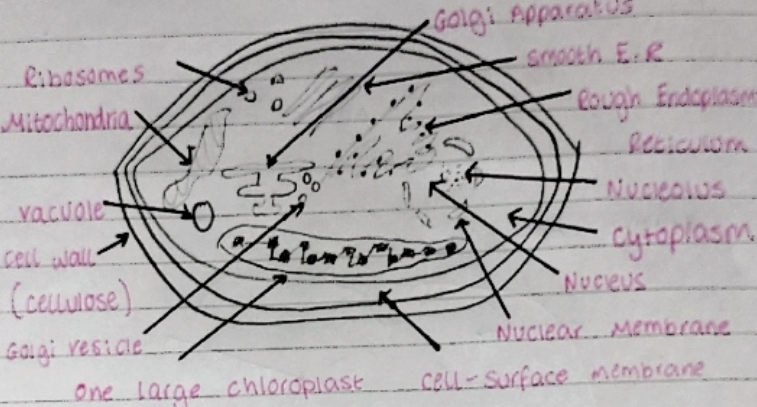 Golgi Apparatus
Ribosomes
Smooth E.R
Mitochondria
Rough Endoplasm
Reticulum
Nucleolus
vacuole
Cytoplasm
cell wall
(cellulose)
Nucleus
Golgi vesicle
Nuclear Membrane
One large chloroplast
cell-surface membrane